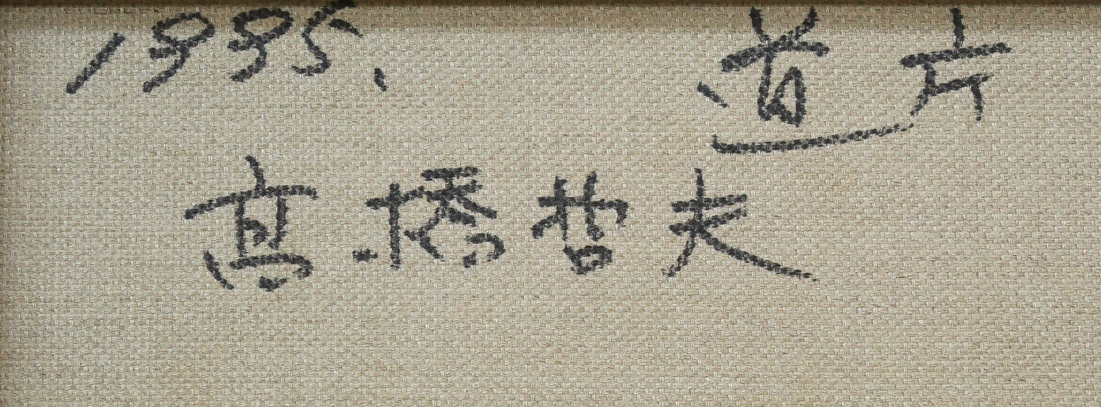 1995、 道
髙橋哲夫